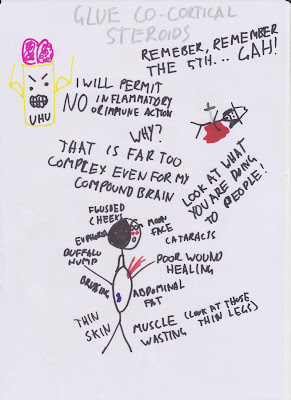 GLUE CO-CORTICAL
STEROIDS
REMEBER, REMEMBER
THE 5TH... GAH!
I WILL PERMIT
NO INFLAMMATORY
OR IMMUNE ACTION
UHU
WHY?
THAT IS FAR TOO
COMPLEX EVEN FOR MY
COMPOUND BRAIN
LOOK AT WHAT
YOU ARE DOING
TO PEOPLE!
FLUSHED
CHEEKS
EUPHORIA
MOON
FACE
CATARACTS
BUFFALO
HUMP
POOR WOUND
HEALING
BRUISING
ABDOMINAL
FAT
THIN
SKIN
MUSCLE (LOOK AT THOSE
WASTING THIN LEGS)